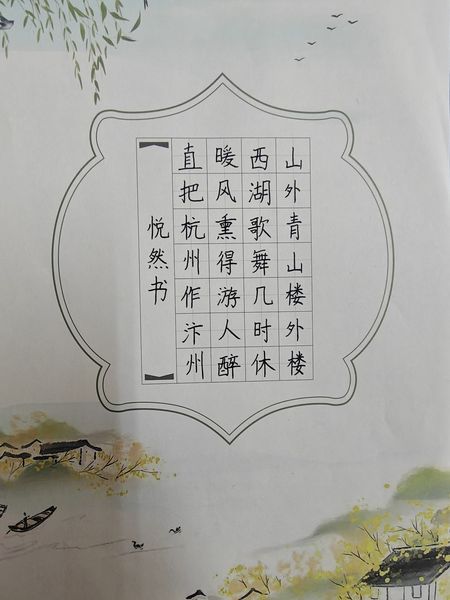 山外青山楼外楼
西湖歌舞几时休
暖风熏得游人醉
直把杭州作汴州
悦然书